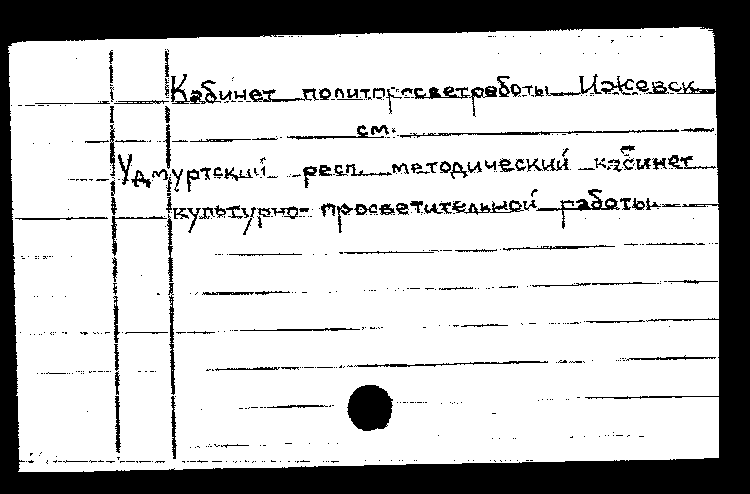 Кабинет политпросветработы Ижевск
см.
Удмуртский респ. методический кабинет
культурно-просветительной работы